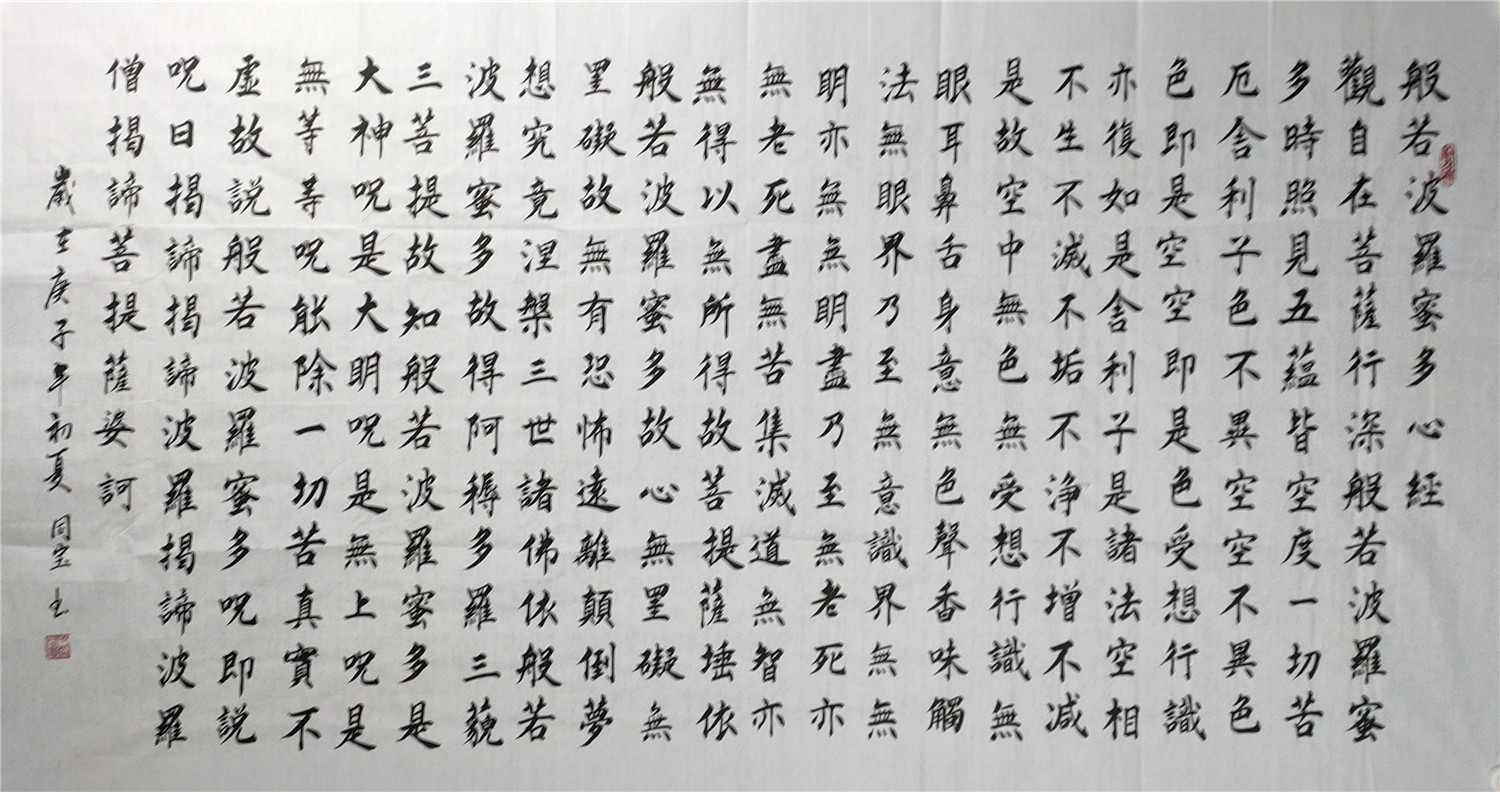 般若波羅蜜多心經
觀自在菩薩行深般若波羅蜜
多時照見五蘊皆空度一切苦
厄舍利子色不異空空不異色
色即是空空即是色受想行識
亦復如是舍利子是諸法空相
不生不滅不垢不浄不增不減
是故空中無色無受想行識無
眼耳鼻舌身意無色聲香味觸
法無眼界乃至無意識界無無
明亦無無明盡乃至無老死亦
無老死盡無苦集滅道無智亦
無得以無所得故菩提薩埵依
般若波羅蜜多故心無罣礙無
罣礙故無有恐怖遠離顛倒夢
想究竟涅槃三世諸佛依般若
波羅蜜多故得阿耨多羅三藐
三菩提故知般若波羅蜜多是
大神呪是大明呪是無上呪是
無等等呪能除一切苦真實不
虛故説般若波羅蜜多呪即説
呪曰揭諦揭諦波羅揭諦波羅
僧揭諦菩提薩婆訶
歲在庚子年初夏 同宝书